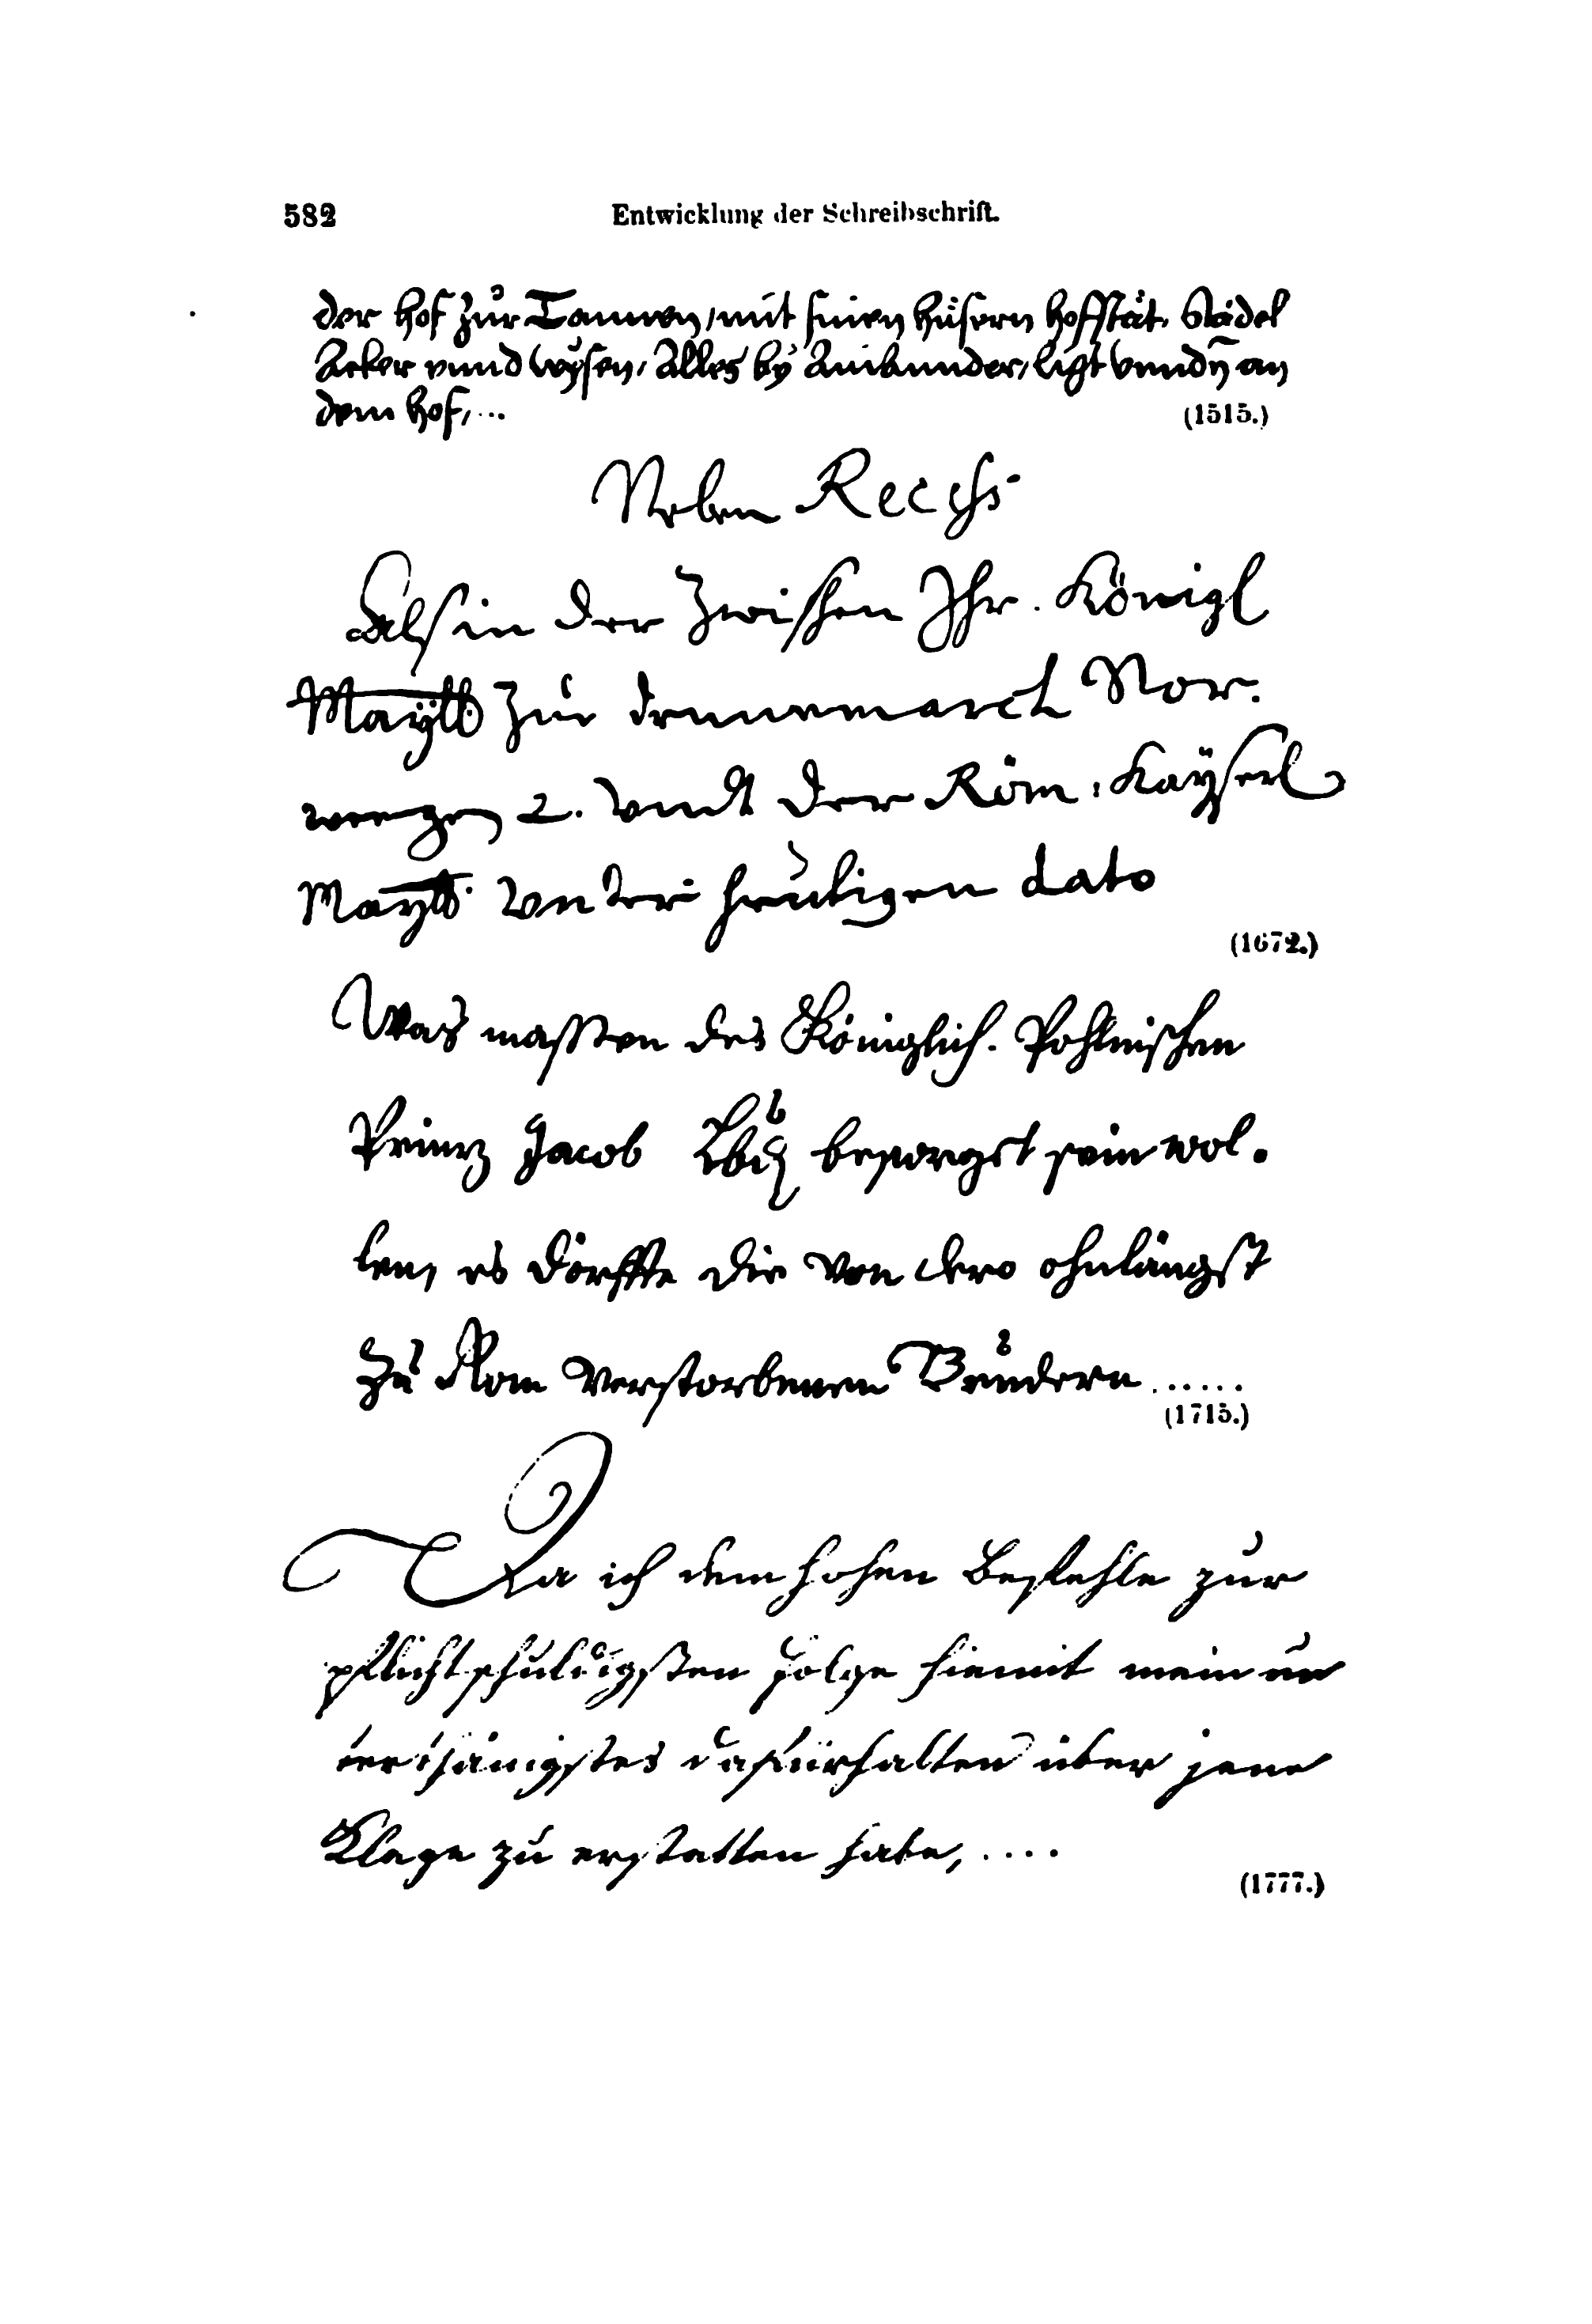 582 Entwicklung der Schreibschrift.
der Hof zur Tannen, mit sinen Hüsern Hofstät, Städel
Acker vnnd wysen, Alles by ligt vnndn an
dem Hof, ...
(1515.)
Neben Recess
Alß in der zwischen Ihr. Königl
Maytt zur dennemarck Nor.
wegen 2. Vndt der Röm. Kayserl
Maytt vnter heutigen dato
(1672.)
Was massen des Königlich. Pohlnischen
Prinz Jacob besorget sein wol.
len, es dörffte die von dero ohnlängst
zu Rom verstorbenen ......
(1715.)
Da ich dem hohen Befehle zur
pflichtschuldigsten folge hiemit mein un
terthänigstes dafürhalten über jene
Klage zu erstatten habe, ....
(1777.)